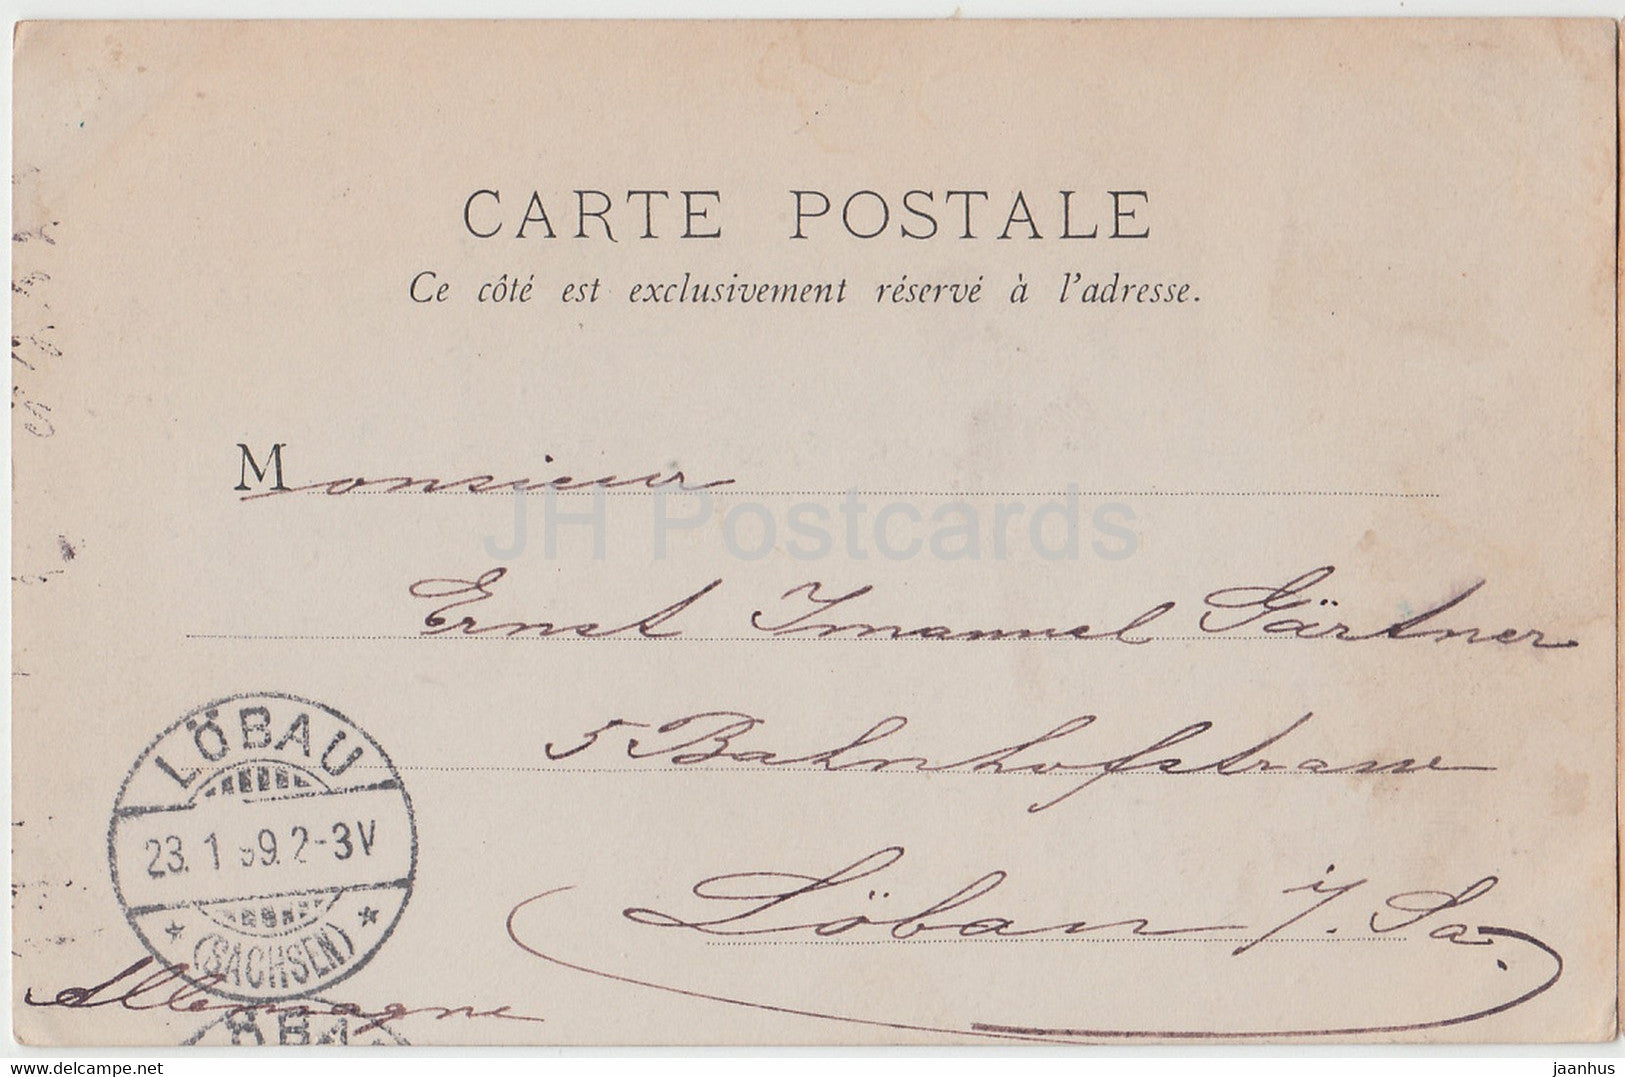 CARTE POSTALE
Ce côté est exclusivement réservé à l'adresse.
Monsieur
JH Postcards
Ernst Immanuel Gärtner
5 Bahnhofstrasse
Löbau i/. Sa.
Allemagne
LÖBAU
23. 1 99. 2-3V
* (SACHSEN) *
ÖBA
delcampe.net
jaanhus